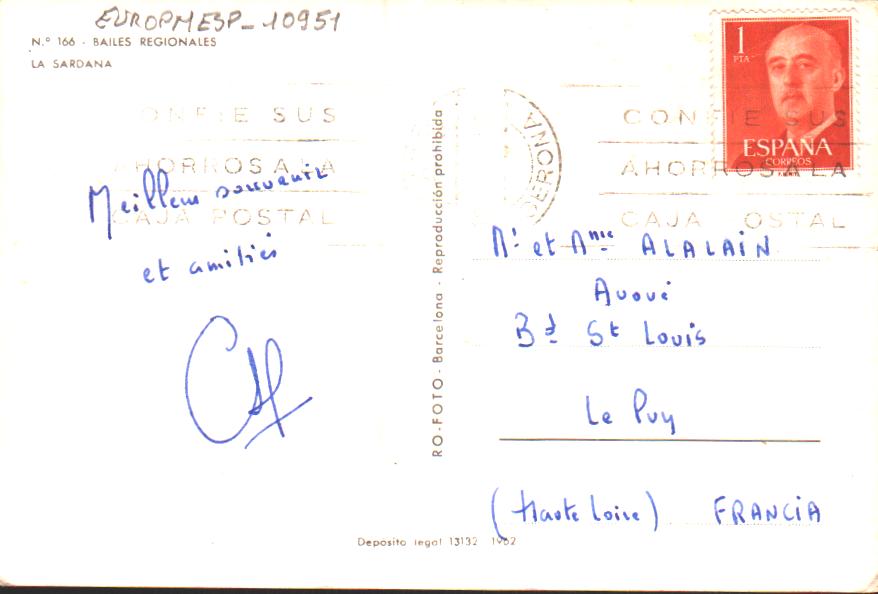 EUROPMESP-10951
N.º 166 - BAILES REGIONALES
LA SARDANA
ONFIE SUS
AHORROS A LA
CAJA POSTAL
Meilleurs souvenirs
et amitiés
RO-FOTO - Barcelona - Reproducción prohibida
GERONA
CONFIE SUS
AHORROS A LA
CAJA OSTAL
1
PTA
ESPAÑA
CORREOS
F.N.M.T.
Mr et Mme ALALAIN
Avoué
Bd St Louis
Le Puy
(Haute Loire) FRANCIA
Depósito legal 13132 1962